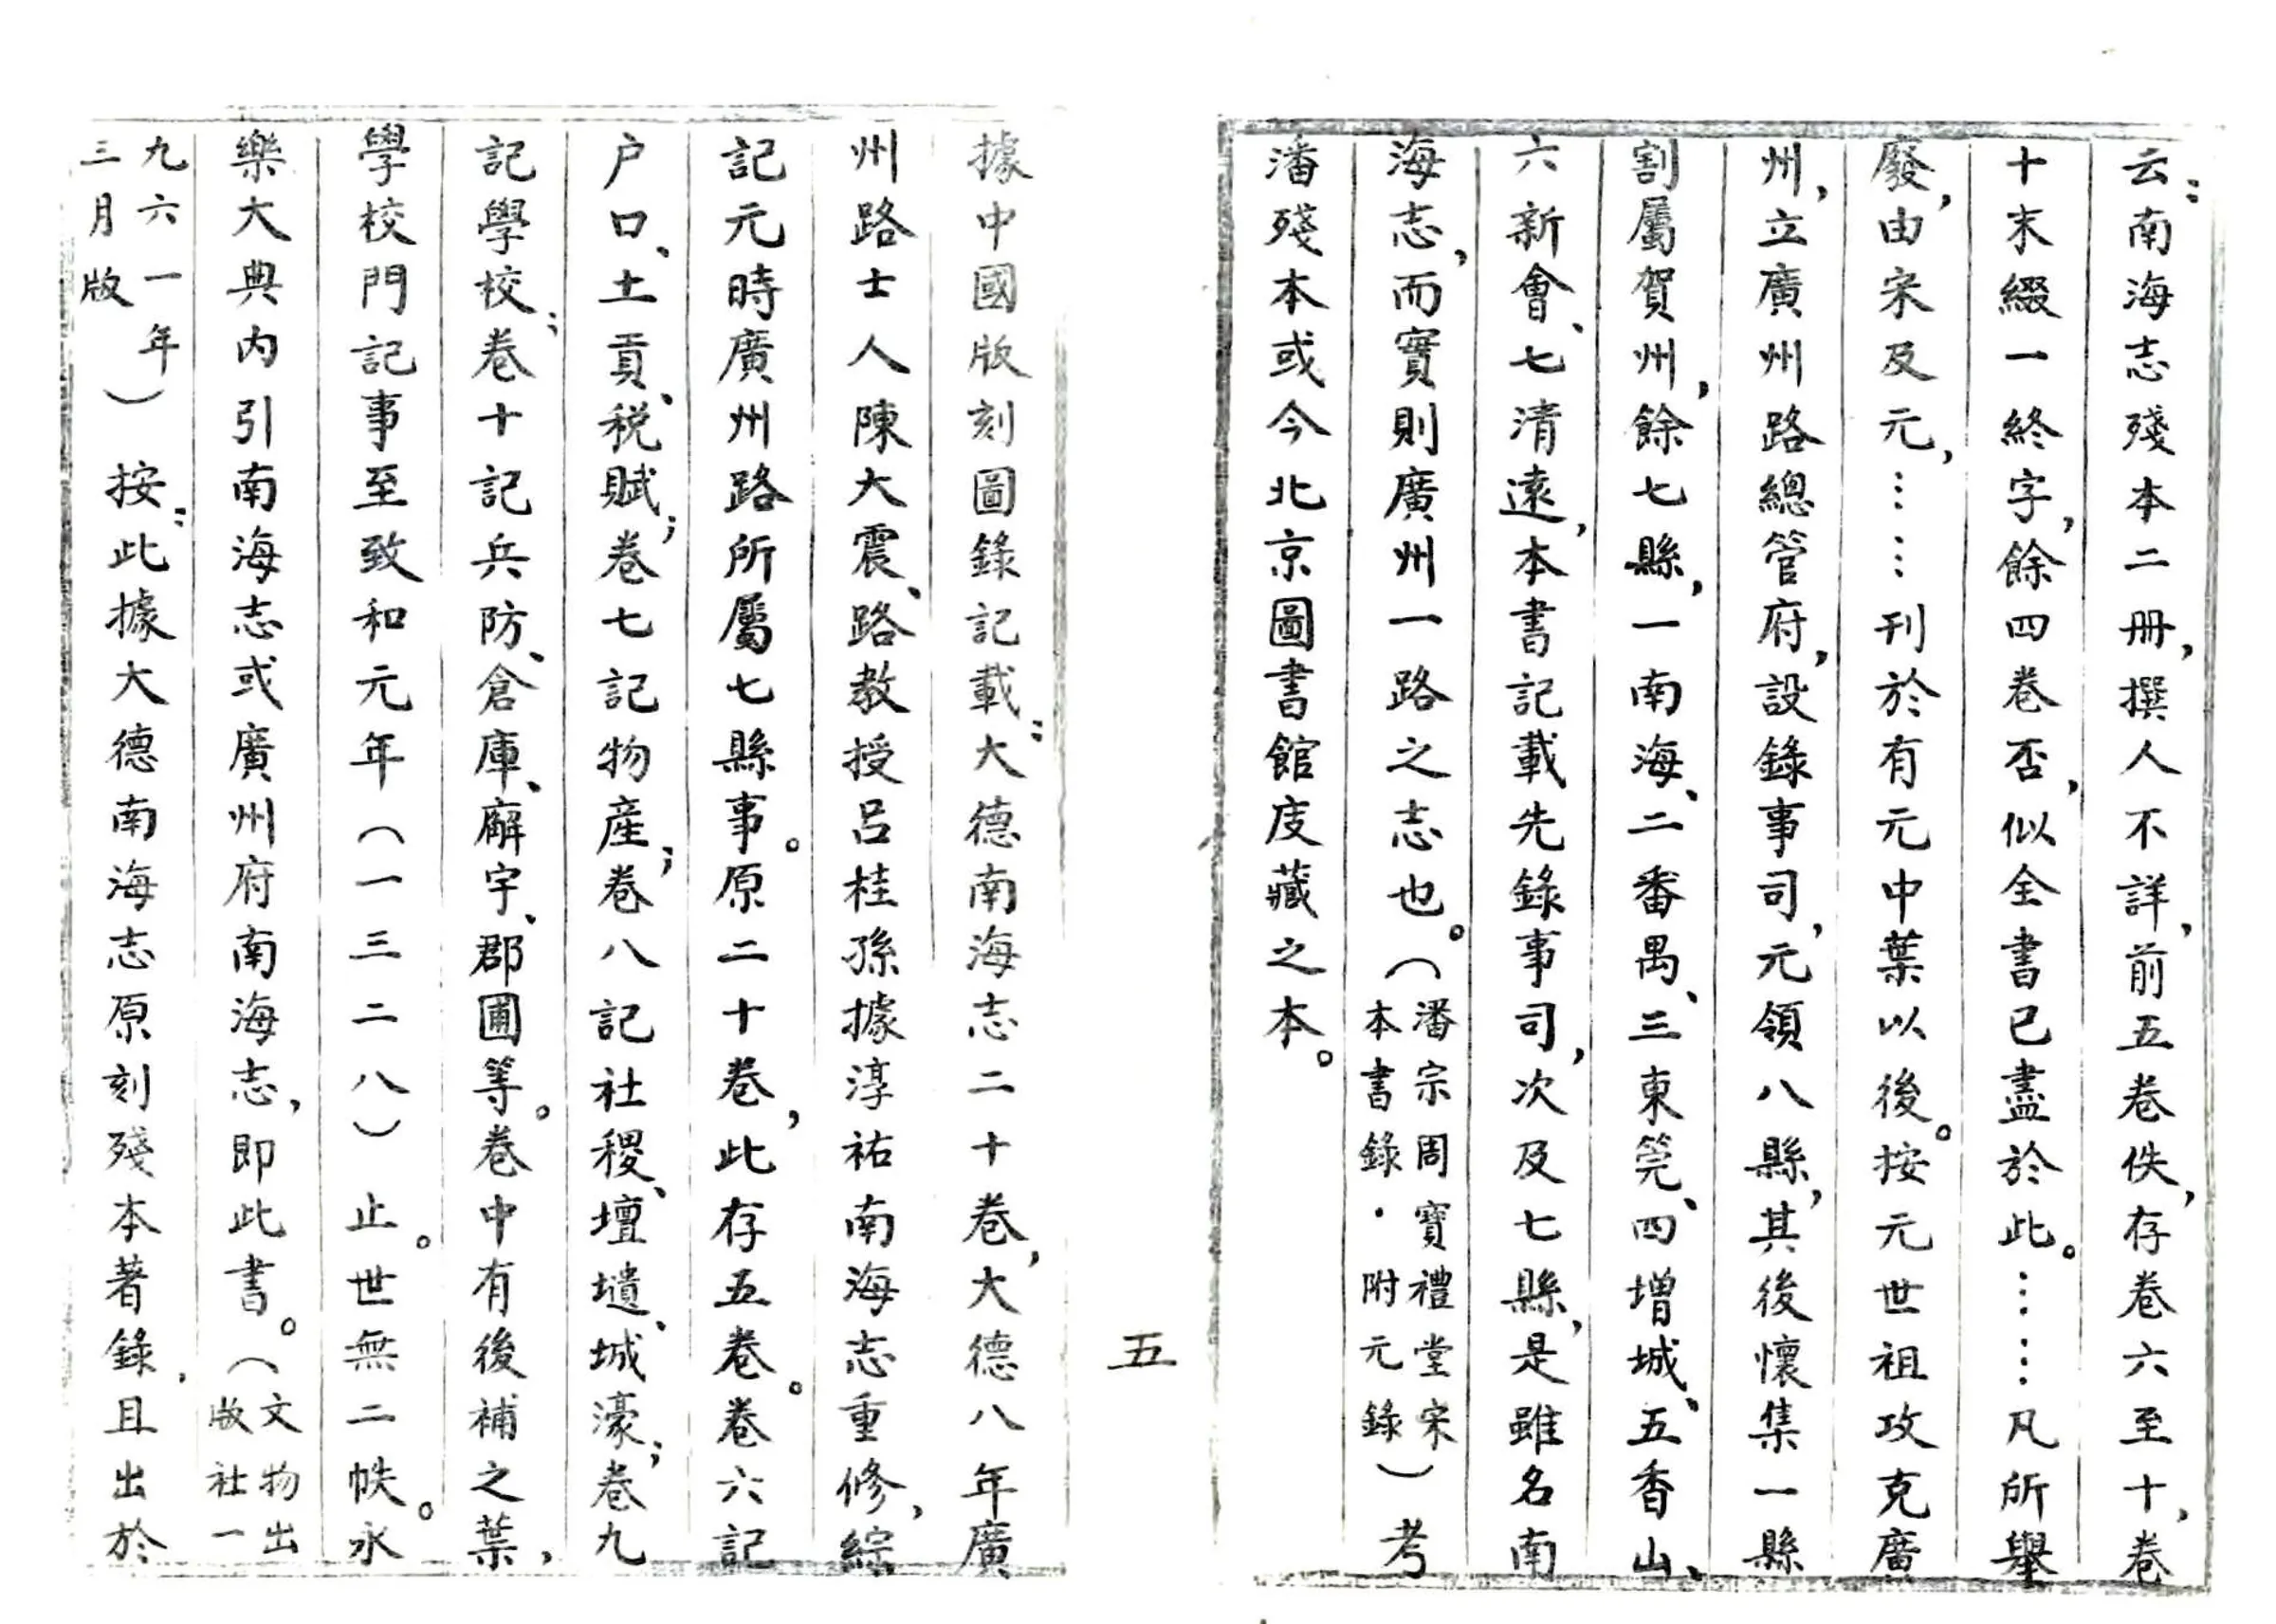 云：南海志殘本二冊，撰人不詳，前五卷佚，存卷六至十，卷
十末綴一終字，餘四卷否，似全書已盡於此。……凡所舉
廢，由宋及元，……刊於有元中葉以後。按元世祖攻克廣
州，立廣州路總管府，設錄事司，元領八縣，其後懷集一縣
割屬賀州，餘七縣，一南海、二番禺、三東筦、四增城、五香山、
六新會、七清遠，本書記載先錄事司，次及七縣，是雖名南
海志，而實則廣州一路之志也。（潘宗周寶禮堂宋本書錄·附元錄）考
潘殘本或今北京圖書館庋藏之本。
五
據中國版刻圖錄記載：大德南海志二十卷，大德八年廣
州路士人陳大震、路教授呂桂孫據淳祐南海志重修，綜
記元時廣州路所屬七縣事。原二十卷，此存五卷。卷六記
户口、土貢、税賦；卷七記物産；卷八記社稷、壇壝、城濠；卷九
記學校；卷十記兵防、倉庫、廨宇、郡圃等。卷中有後補之葉，
學校門記事至致和元年（一三二八）止。世無二帙。永
樂大典内引南海志或廣州府南海志，即此書。（文物出版社一
九六一年三月版）按：此據大德南海志原刻殘本著錄，且出於